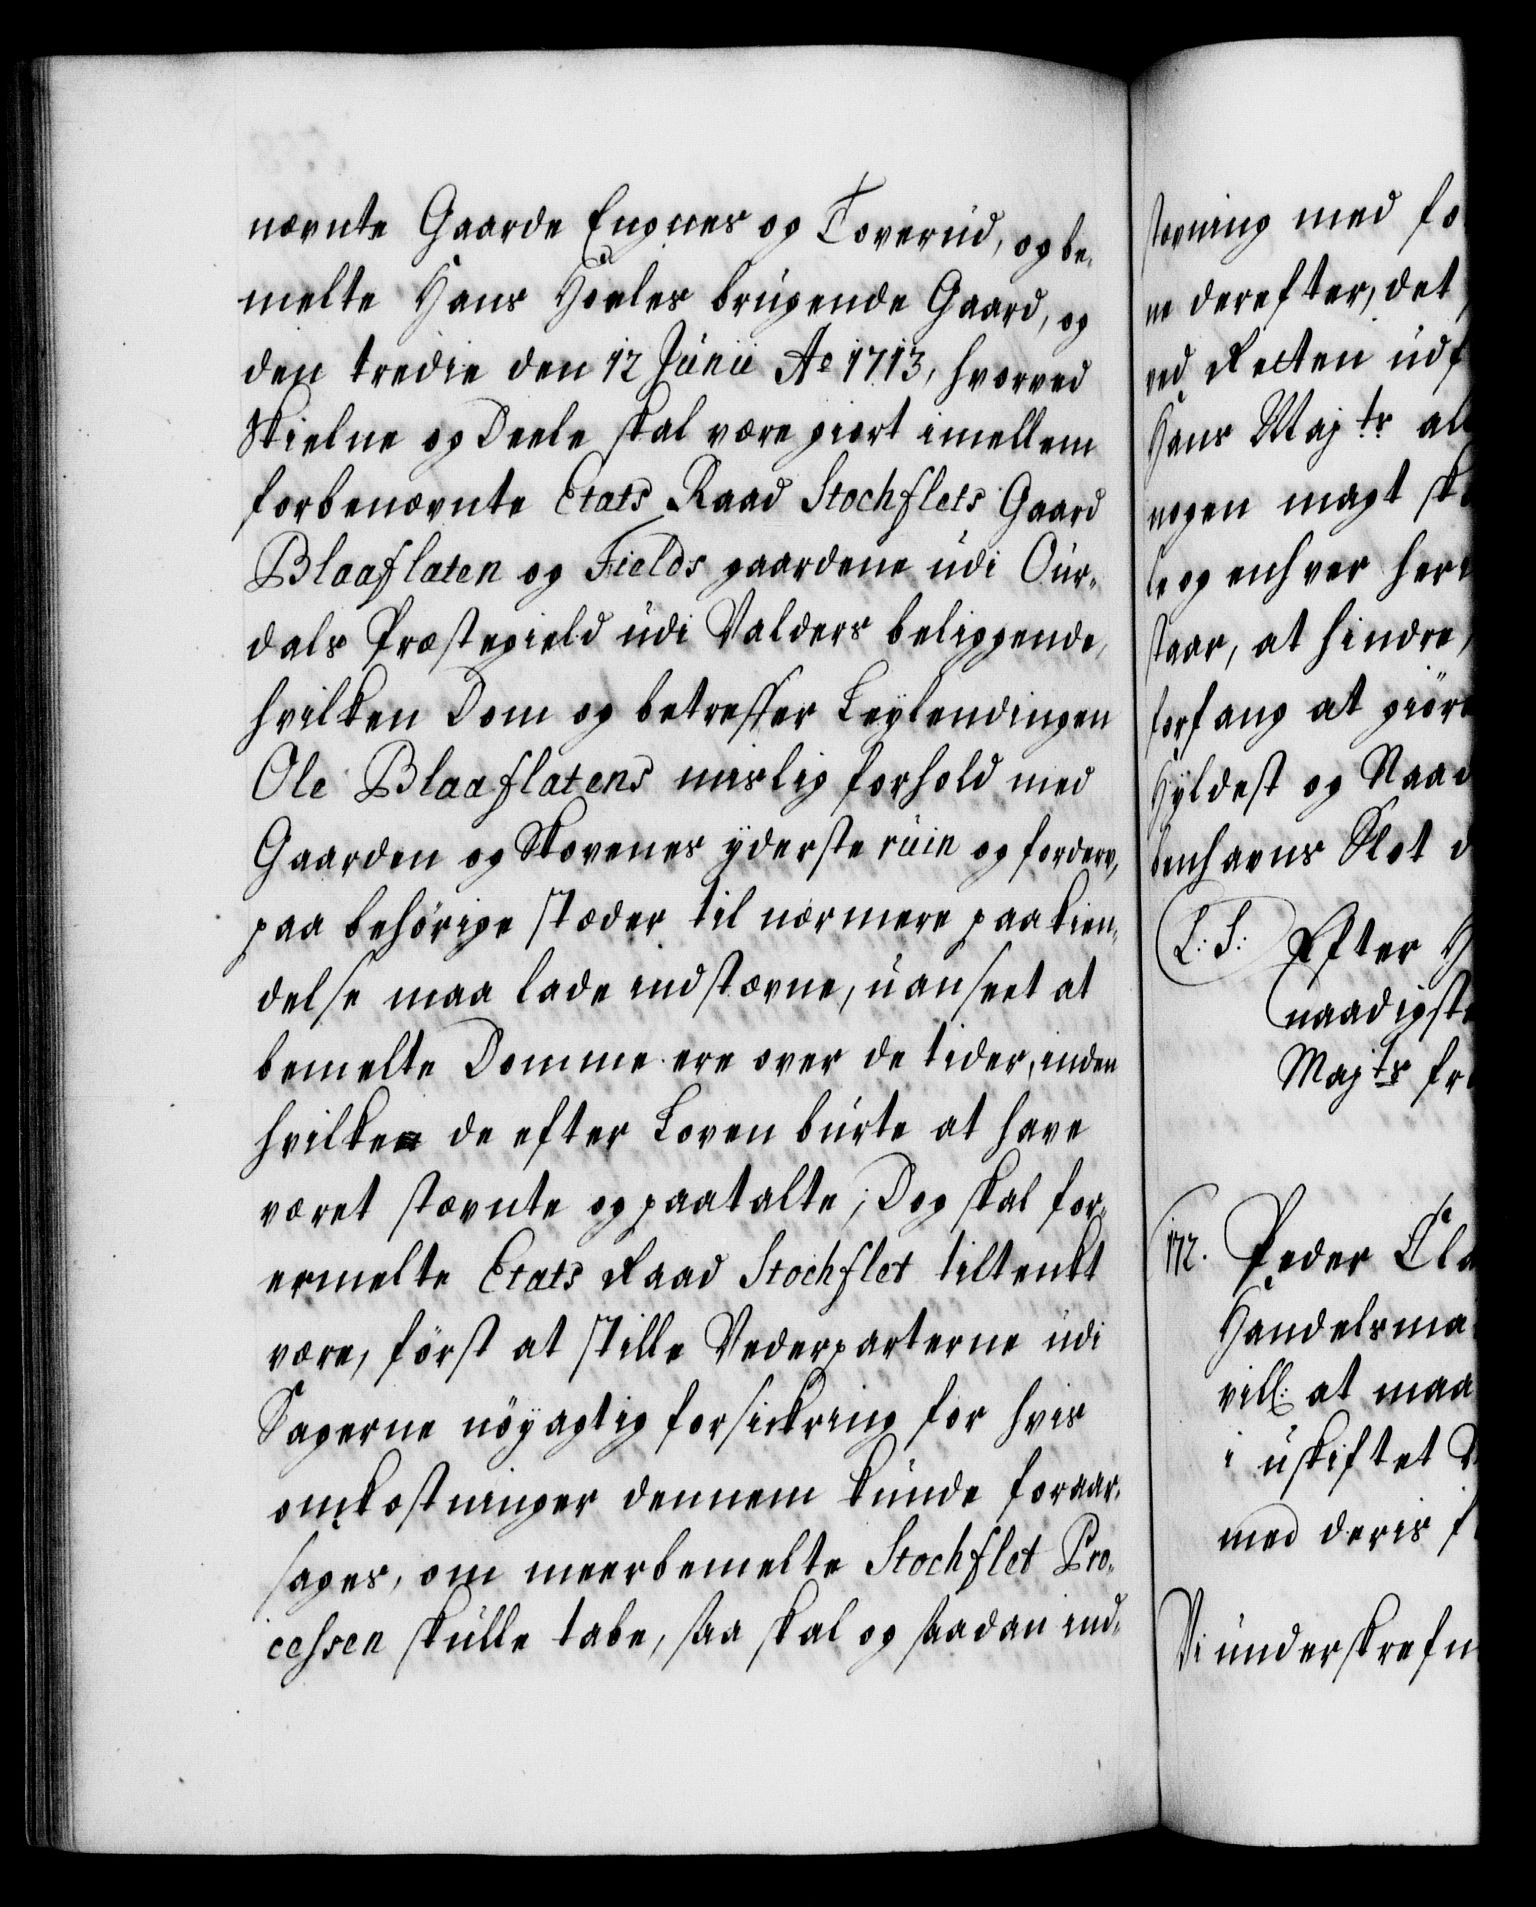 nævnte Gaarde Engnes og Toverud, og be,
melte Hans Hoeles brugende Gaard, og
den tredie den 12 Junii Ao 1713, hvorved
Skielne og Deele skal være giort imellem
forbenævnte Etats Raad Stochflets Gaard
Blaaflaten og Fields gaardene udi Our,
dals Præstegield udi Valders beliggende,
hvilken Dom og betreffer Leylendingen
Ole Blaaflatens mislig forhold med
Gaarden og Skovenes yderste ruin og forderv,
paa behörige stæder til nærmere paakien,
delse maa lade indstævne, uanseet at
bemelte Domme ere over de tider, inden
hvilke de efter Loven burte at have
været stævnte og paatalte; Dog skal for,
ermelte Etats Raad Stochflet tiltenkt
være, först at stille Vederparterne udi
Sagerne nöyagtig forsickring for hvis
omkostninger dennem kunde foraar,
sages, om meerbemelte Stochflet Pro,
cessen skulle tabe, saa skal og saadan ind,
stævning med fo
ne derefter, det
ved Retten udf
Hans Majts al
nogen magt sk
le og enhver her
staar, at hindre,
forfang at giör
Hyldest og Naad
benhavns Slot d
L: S: Efter H
naadigst
Majts fr
172. Peder Cla
Handelsma
vill: at maa
i uskiftet
med deris f
Vi underskrefn